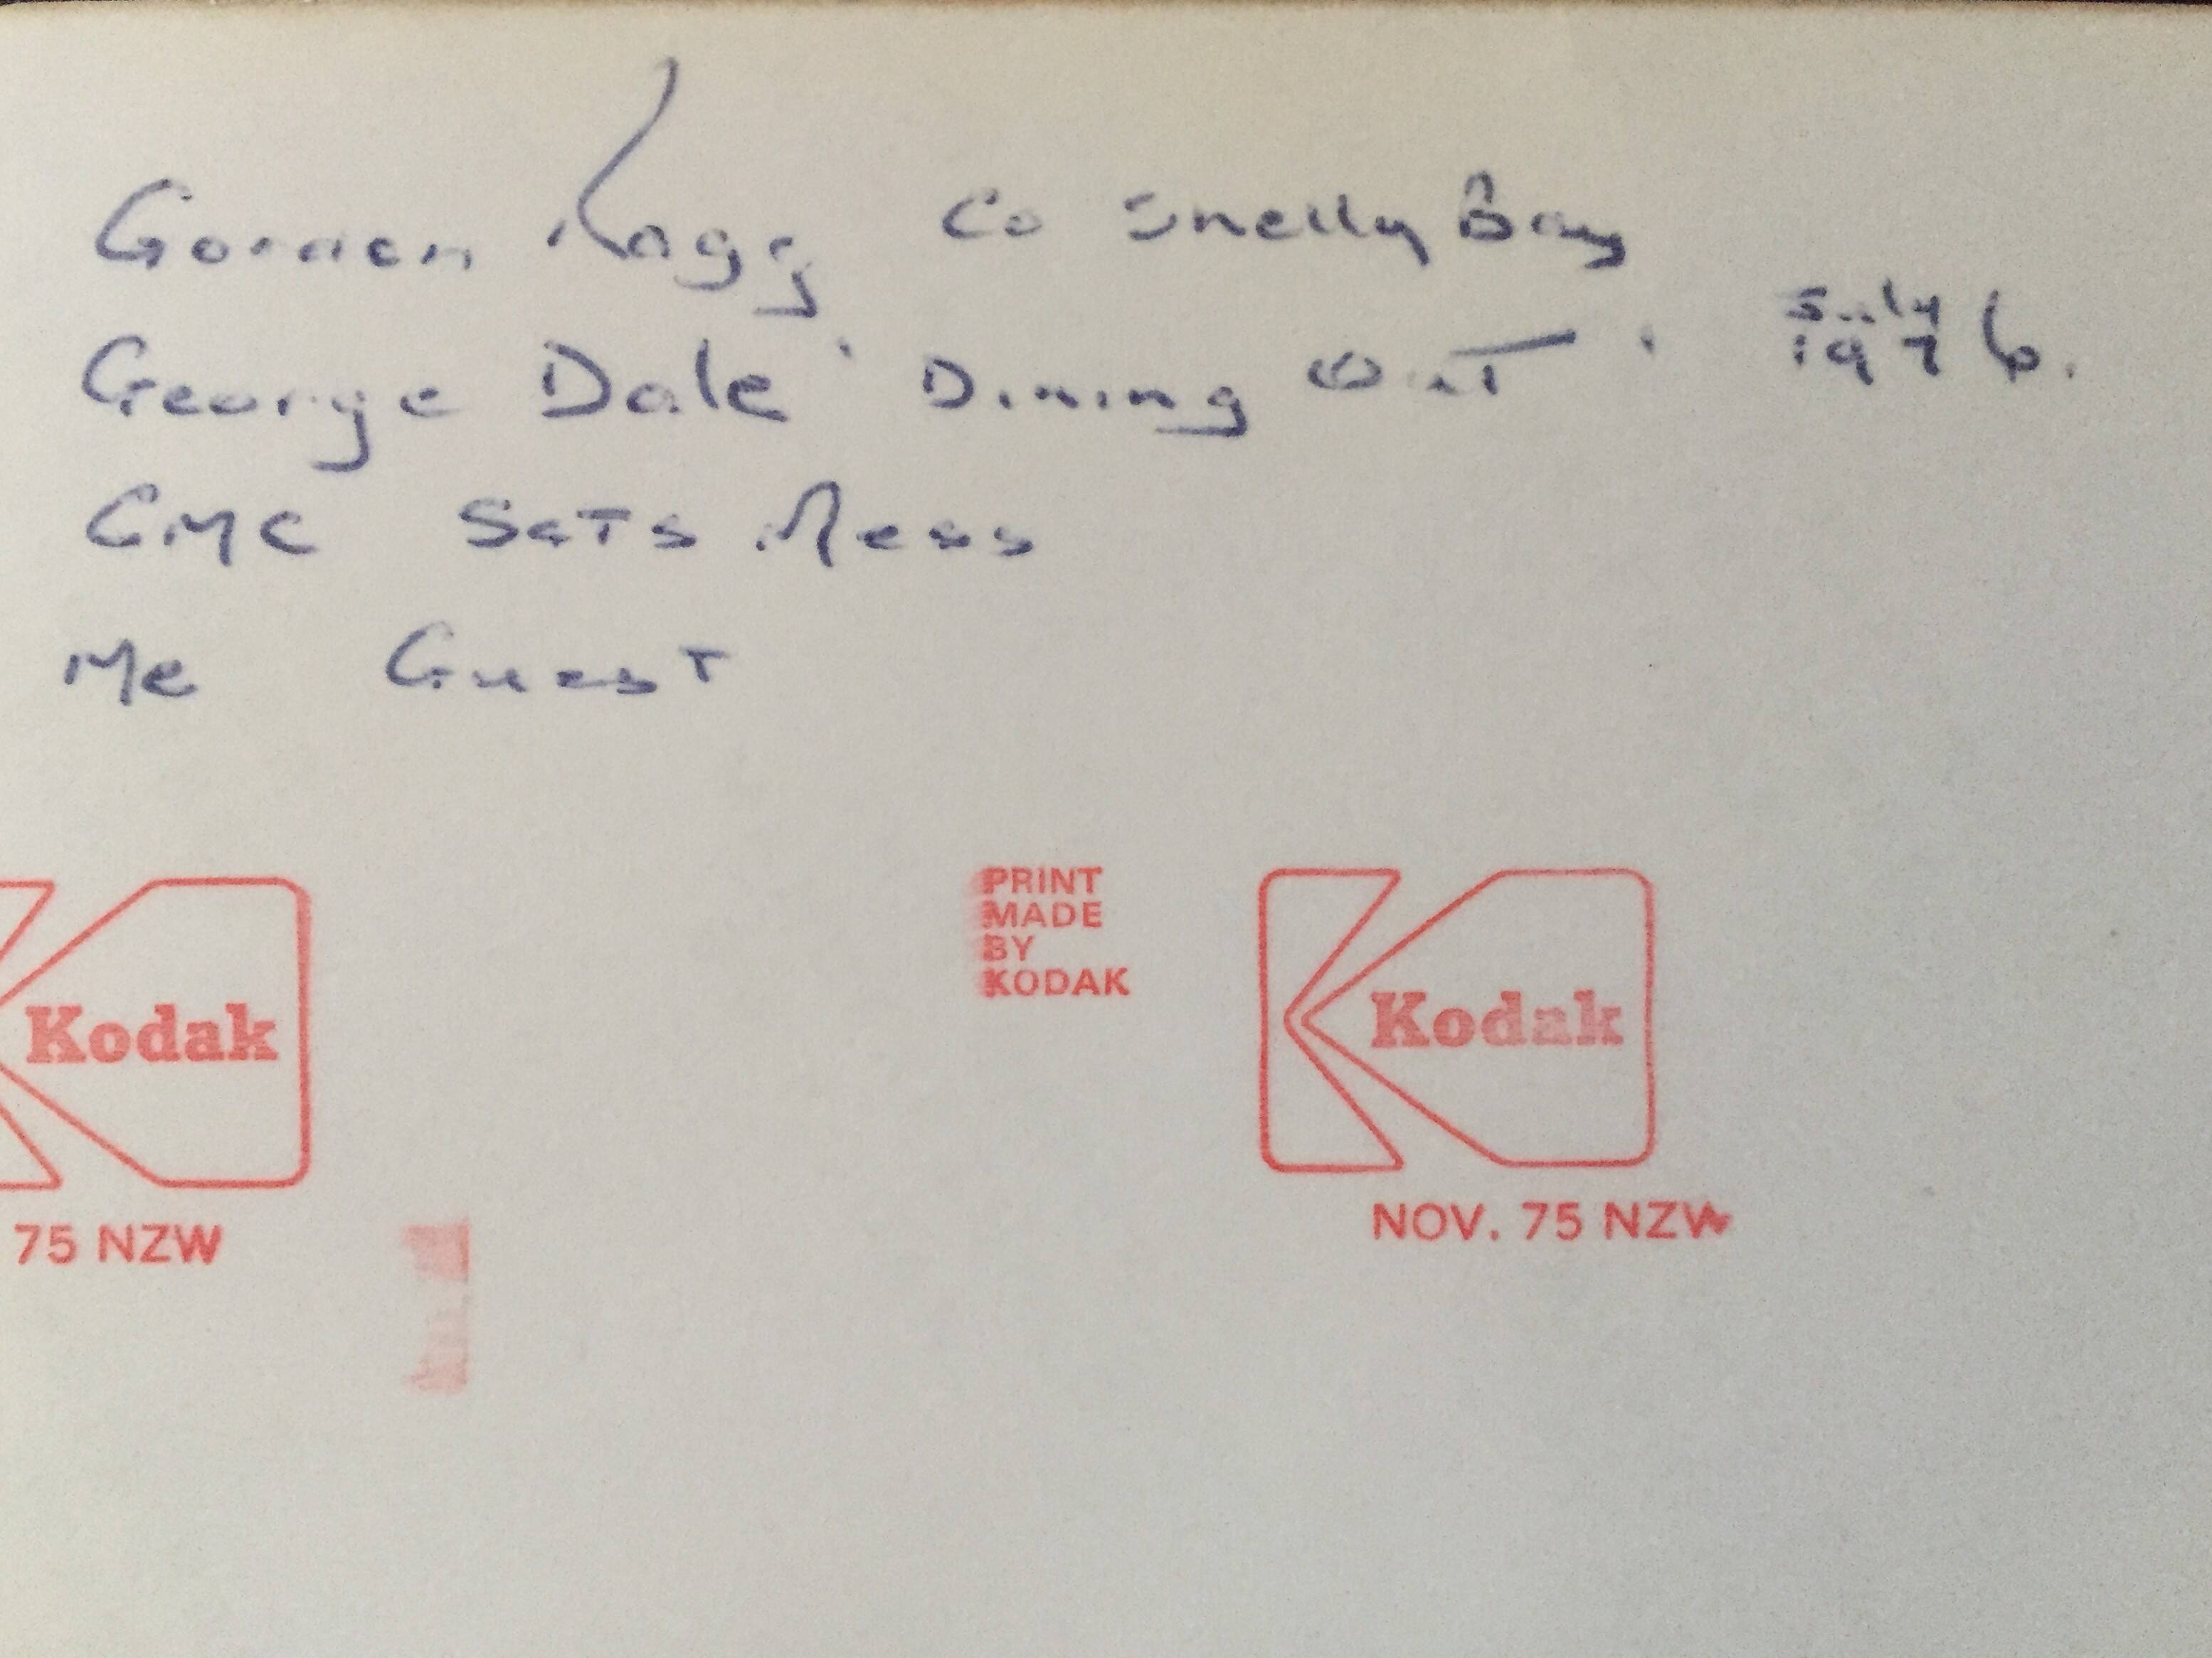 Gordon Ragg Co Shelly Bay
George Dale ' Dining Out ' July 1976.
CMC Sgts Mess
Me Guest
PRINT
MADE
BY
KODAK
Kodak
Kodak
75 NZW
NOV. 75 NZW